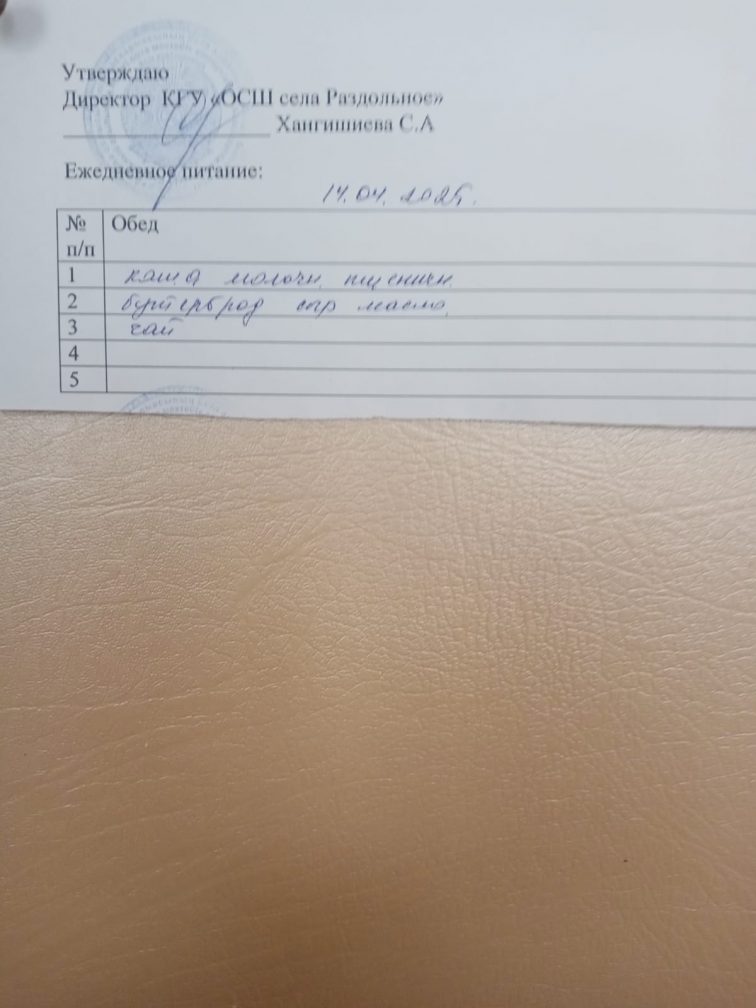 Утверждаю
Директор КГУ «ОСШ села Раздольное»
Хангишиева С.А
Ежедневное питание:
14.04.2025.
№ п/п Обед
1 каша молочн. пшеничн.
2 бутерброд сыр масло.
3 чай
4
5